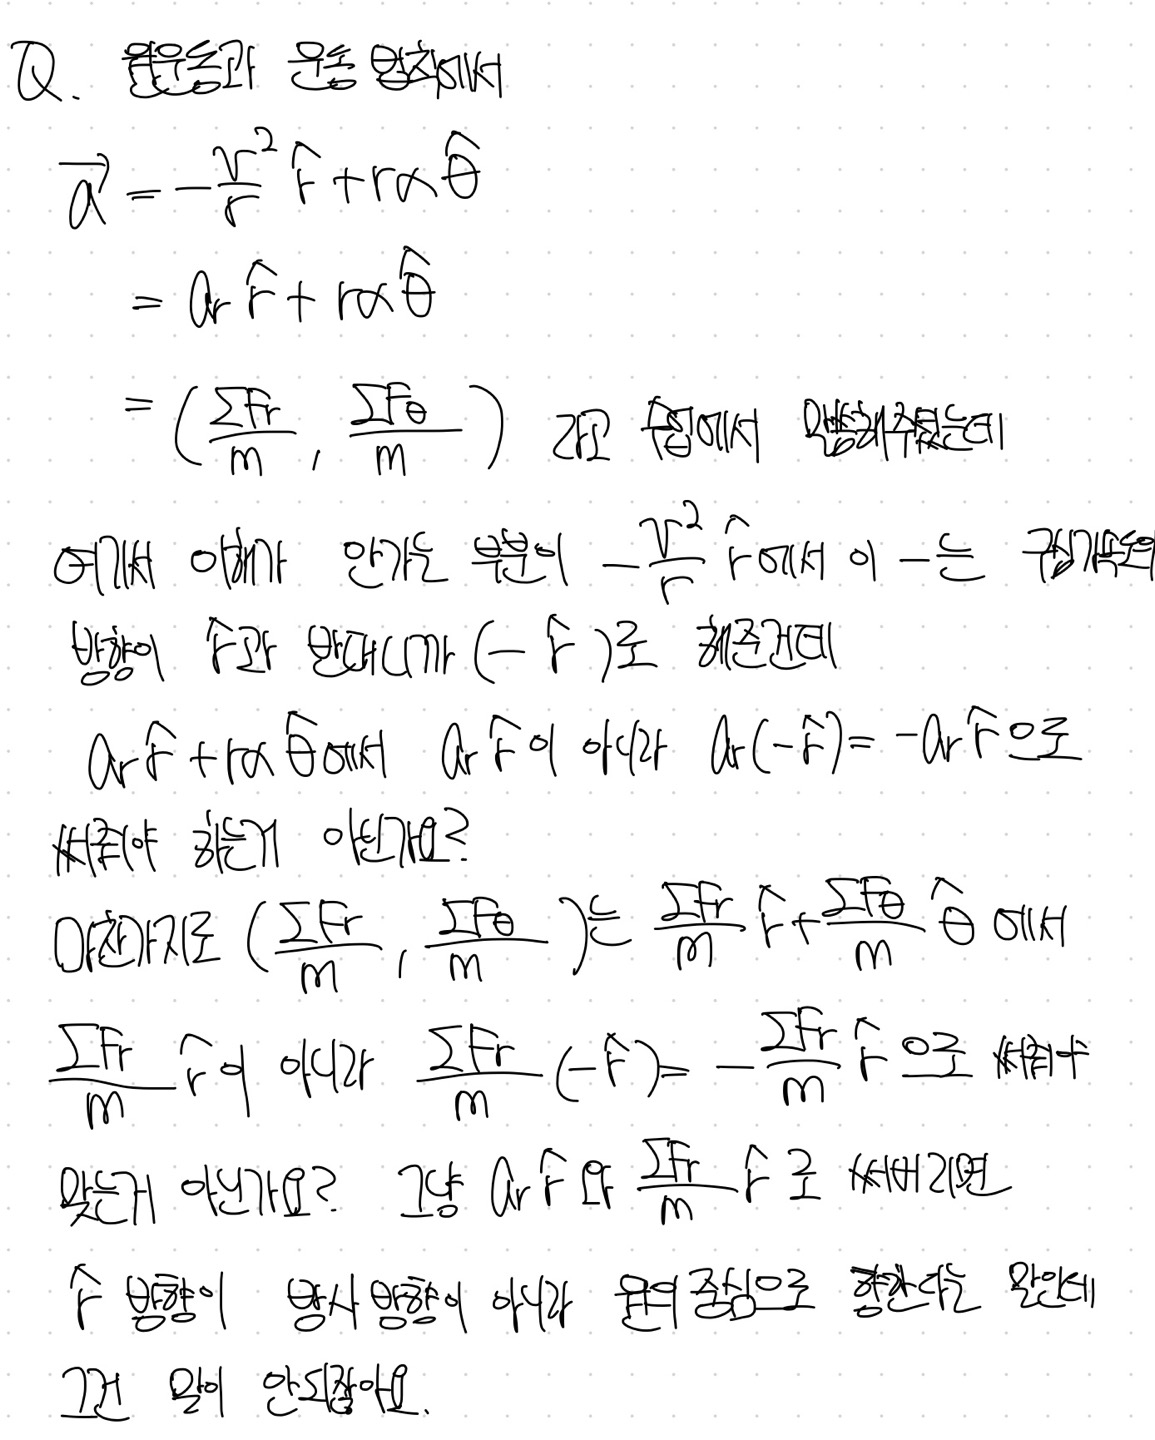 Q. 원운동과 운동 법칙에서
\vec{a} = -\frac{v^2}{r} \hat{r} + rα\hat{θ}
= a_r \hat{r} + rα\hat{θ}
= (\frac{ΣF_r}{m}, \frac{ΣF_θ}{m}) 라고 수업에서 말씀해주셨는데
여기서 이해가 안가는 부분이 -\frac{v^2}{r} \hat{r}에서 이 -는 구심가속도의
방향이 \hat{r}과 반대니까 (-\hat{r})로 해준건데
a_r \hat{r} + rα\hat{θ}에서 a_r \hat{r}이 아니라 a_r(-\hat{r}) = -a_r \hat{r}으로
써줘야 하는게 아닌가요?
마찬가지로 (\frac{ΣF_r}{m}, \frac{ΣF_θ}{m})는 \frac{ΣF_r}{m} \hat{r} + \frac{ΣF_θ}{m} \hat{θ} 에서
\frac{ΣF_r}{m} \hat{r}이 아니라 \frac{ΣF_r}{m} (-\hat{r}) = -\frac{ΣF_r}{m} \hat{r} 으로 써줘야
맞는거 아닌가요? 그냥 a_r \hat{r} 와 \frac{ΣF_r}{m} \hat{r} 로 써버리면
\hat{r} 방향이 방사 방향이 아니라 원의 중심으로 향한다는 말인데
그건 말이 안되잖아요.